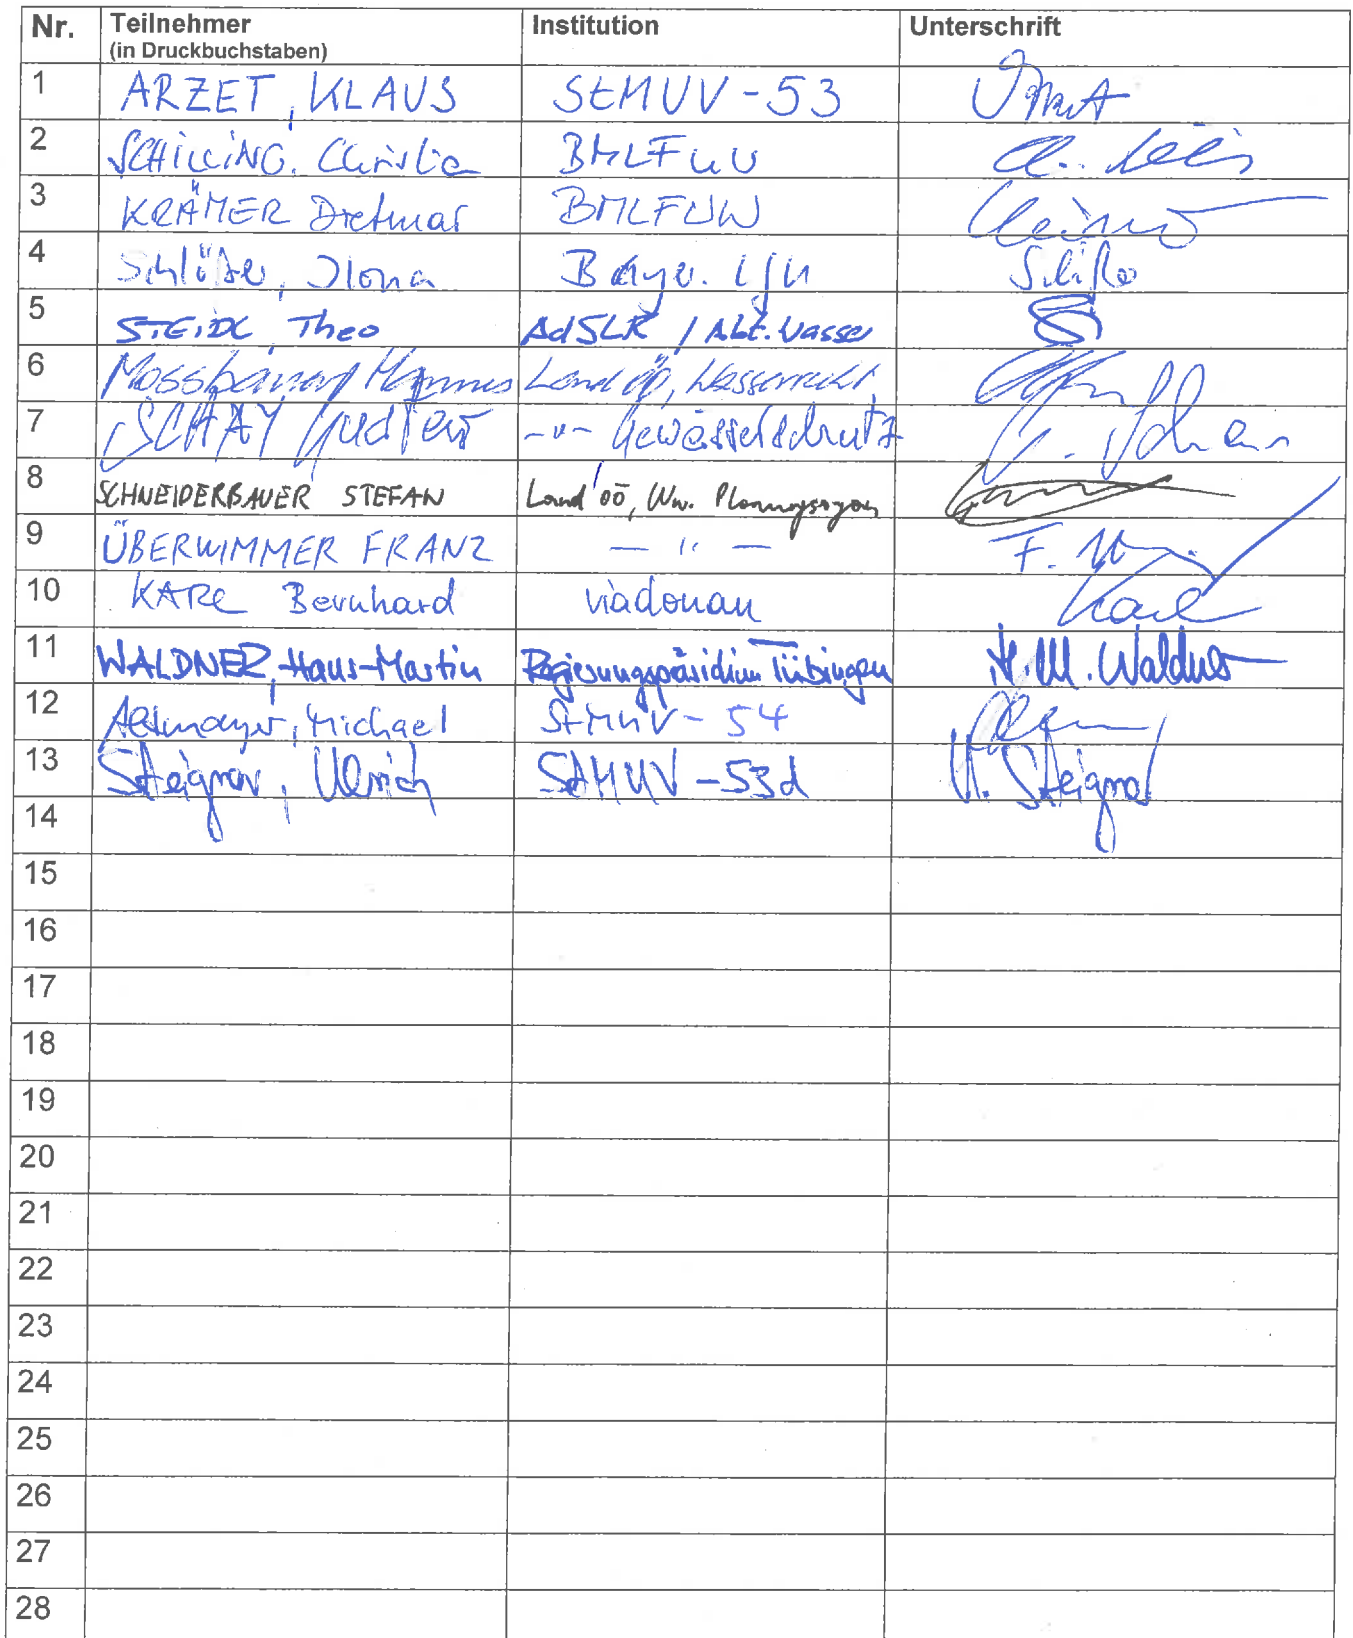 Nr. Teilnehmer (in Druckbuchstaben) Institution Unterschrift
1 ARZET, KLAUS StMUV - 53
2 SCHILLING, Christian BMLFUW
3 KRÄMER Dietmar BMLFUW
4 Schlößer, Ilona Bayer. LfU
5 STEIDL, Theo AdSLR / Abt. Wasser
6 Mossbauer Hannes Land OÖ, Wasserrecht
7 SCHAY Gustav -"- Gewässerschutz
8 SCHNEIDERBAUER STEFAN Land OÖ, Ww. Planungsorgan
9 ÜBERWIMMER FRANZ — " — F.
10 KARL Bernhard viadonau Karl
11 WALDNER, Hans-Martin Regierungspräsidium Tübingen H.M. Waldner
12 Altmayer, Michael StMUV - 54
13 Steigner, Ulrich StMUV - 53d U. Steigner
14
15
16
17
18
19
20
21
22
23
24
25
26
27
28